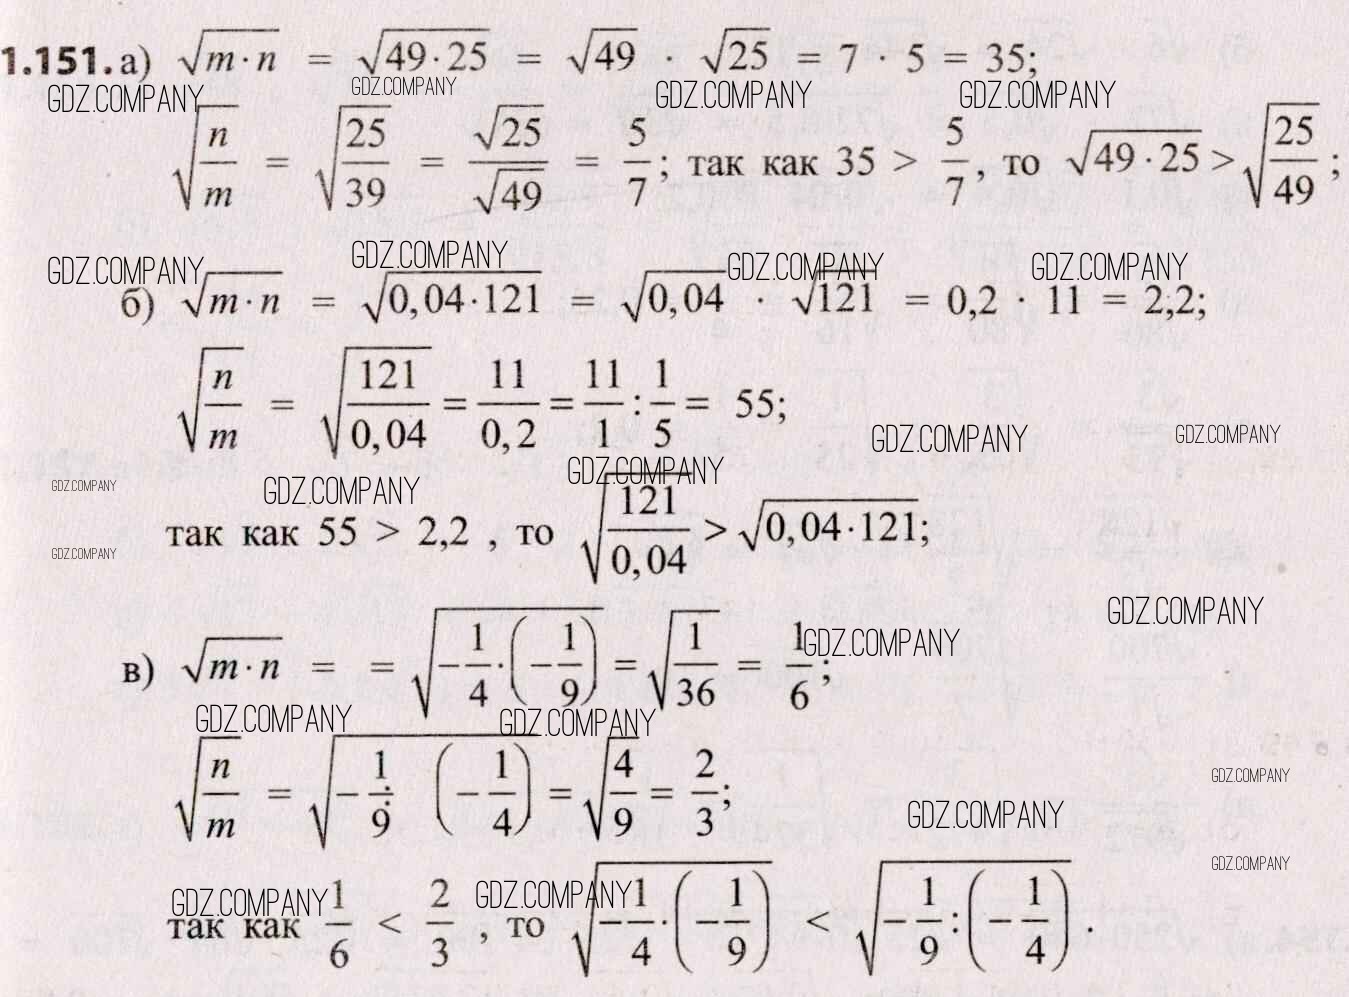 1.151. а) √(m·n) = √(49·25) = √49 · √25 = 7 · 5 = 35;
GDZ.COMPANY GDZ.COMPANY GDZ.COMPANY GDZ.COMPANY
√(n/m) = √(25/39) = √25/√49 = 5/7; так как 35 > 5/7, то √(49·25) > √(25/49);
GDZ.COMPANY GDZ.COMPANY GDZ.COMPANY GDZ.COMPANY
б) √(m·n) = √(0,04·121) = √0,04 · √121 = 0,2 · 11 = 2,2;
√(n/m) = √(121/0,04) = 11/0,2 = 11/1 : 1/5 = 55;
GDZ.COMPANY GDZ.COMPANY
GDZ.COMPANY GDZ.COMPANY GDZ.COMPANY
так как 55 > 2,2 , то √(121/0,04) > √(0,04·121);
GDZ.COMPANY
GDZ.COMPANY
в) √(m·n) = = √(-1/4·(-1/9)) = √(1/36) = 1/6;
GDZ.COMPANY
GDZ.COMPANY GDZ.COMPANY
√(n/m) = √(-1/9 : (-1/4)) = √(4/9) = 2/3;
GDZ.COMPANY
GDZ.COMPANY
GDZ.COMPANY
GDZ.COMPANY GDZ.COMPANY
так как 1/6 < 2/3 , то √(-1/4·(-1/9)) < √(-1/9:(-1/4)) .